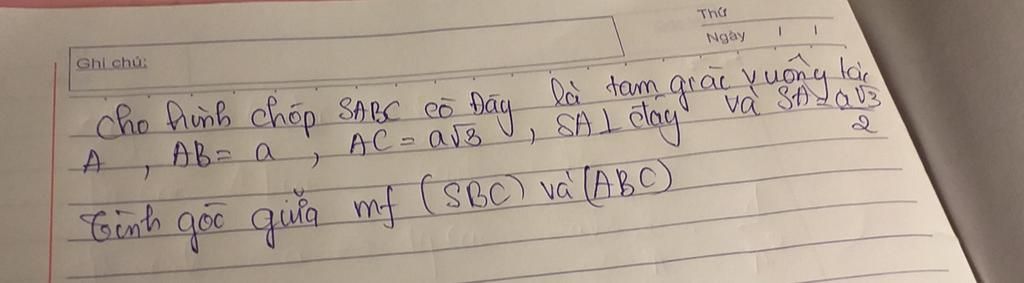 Thứ
Ngày / /
Ghi chú:
Cho hình chóp SABC có đáy là tam giác vuông tại
A, AB = a, AC = a√3, SA ⊥ đáy và SA = a√3/2
tính góc giữa mf (SBC) và (ABC)